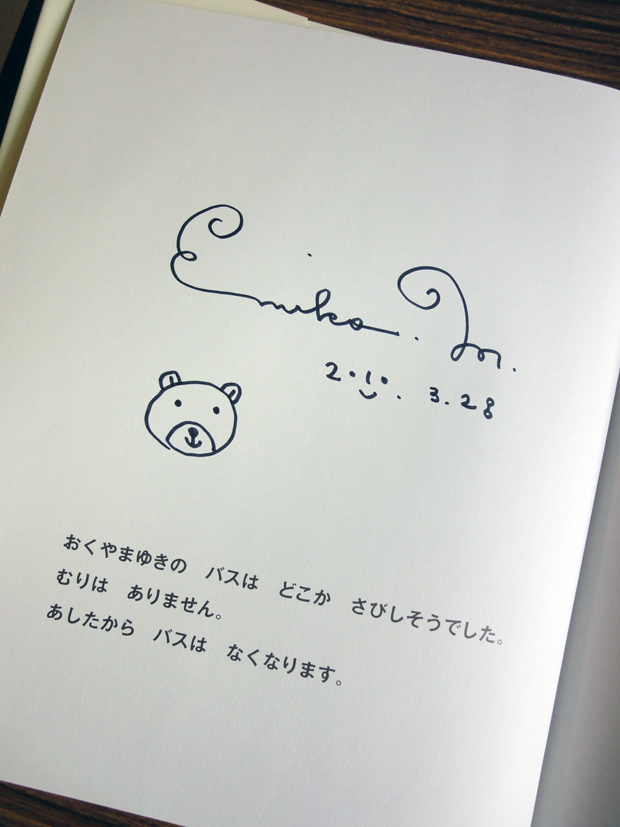 Emiko. M.
2010. 3.28
おくやまゆきの　バスは　どこか　さびしそうでした。
むりは　ありません。
あしたから　バスは　なくなります。